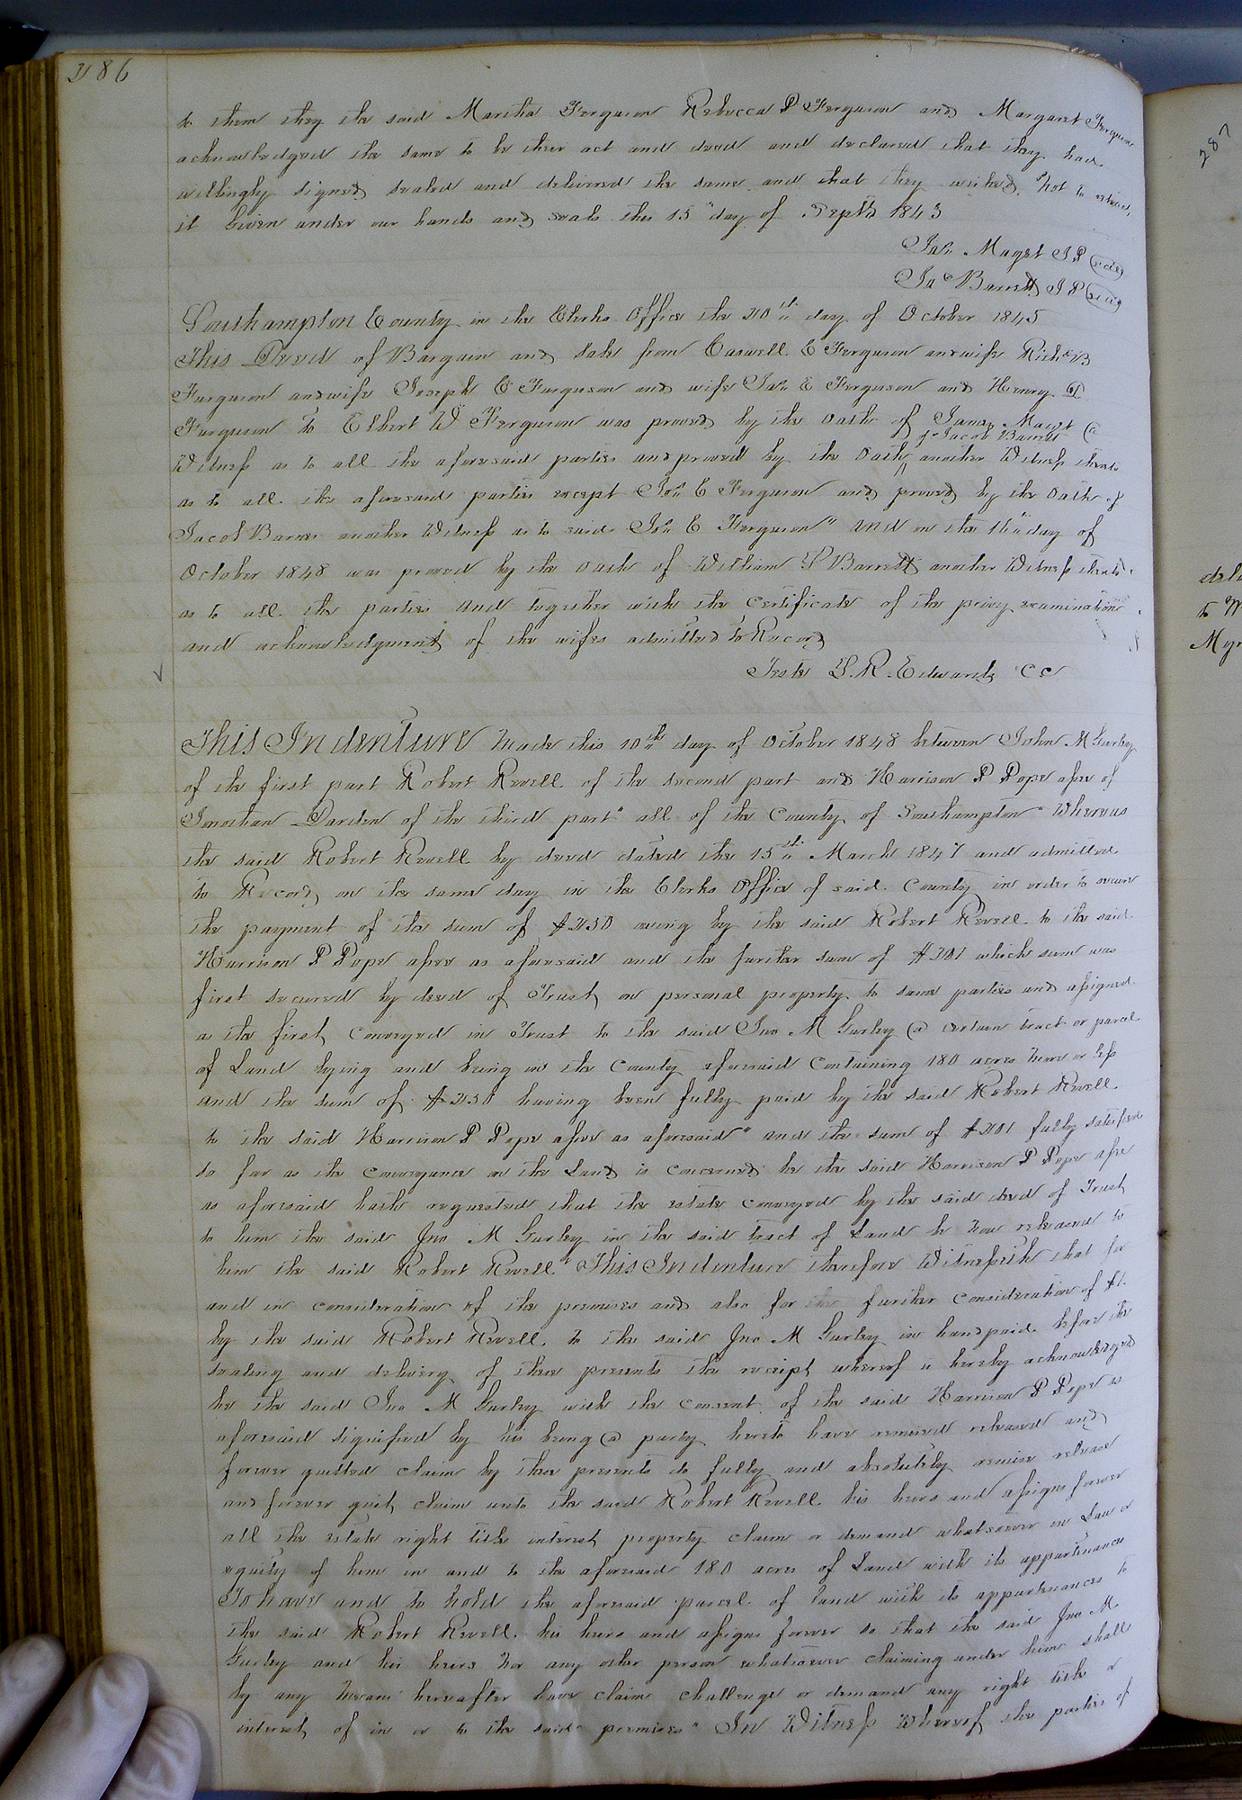 286
to them they the said Martha Ferguson Rebecca P Ferguson and Margaret Ferguson
acknowledged the same to be their act and deed and declared that they had
willingly signed sealed and delivered the same and that they wished not to retract
it Given under our hands and seals this 15th day of Sept 1843
Jas Maget J.P (seal)
Jac Barrett J P (seal)
Southampton County in the Clerks Office the 20th day of October 1845
This Deed of Bargain and Sale from Caswell C Ferguson and wife Richd B
Ferguson and wife Joseph C Ferguson and wife Jno E Ferguson and Henry
Ferguson to Elbert W Ferguson was proved by the Oath of James Maget a
of Jacob Barrett
Witness as to all the aforesaid parties and proved by the Oath another Witness thereto
as to all the aforesaid parties except Jno E Ferguson and proved by the Oath of
Jacob Barnes another Witness as to said Jno E Ferguson" and on the 16th day of
October 1848 was proved by the Oath of William S Barrett another Witness thereto
as to all the parties and together with the certificate of the privy examination
and acknowledgment of the wifes admitted to Record
Teste L.R. Edwards CC
This Indenture made this 10th day of October 1848 between John M Gurley
of the first part Robert Revell of the second part and Harrison P Pope assee of
Jonathan Darden of the third part" all of the County of Southampton" Whereas
the said Robert Revell by deed dated the 15th March 1847 and admitted
to Record on the same day in the Clerks Office of said County in order to secure
the payment of the sum of $250 owing by the said Robert Revell to the said
Harrison P Pope assee as aforesaid and the further sum of $201 which sum was
first secured by deed of Trust on personal property to same parties and assigned
as the first, conveyed in Trust to the said Jno M Gurley a certain tract or parcel
of Land lying and being in the County aforesaid Containing 180 acres more or less
and the sum of $250 having been fully paid by the said Robert Revell
to the said Harrison P Pope assee as aforesaid" and the sum of $201 fully satisfied
so far as the conveyance on the Land is concerned he the said Harrison P Pope assee
as aforesaid hath requested that the estate conveyed by the said deed of Trust
to him the said Jno M Gurley in the said tract of Land be now released to
him the said Robert Revell" This Indenture therefore Witnesseth that for
and in consideration of the premises and also for the further consideration of $1.
by the said Robert Revell to the said Jno M Gurley in hand paid before the
sealing and delivery of these presents the receipt whereof is hereby acknowledged
he the said Jno M Gurley with the consent of the said Harrison P Pope as
aforesaid signified by his being a party hereto have remised released and
forever quitted claim by these presents do fully and absolutely remise release
and forever quit claim unto the said Robert Revell his heirs and assigns forever
all the estate right title interest property claim or demand whatsoever in Law or
equity of him in and to the aforesaid 180 acres of Land with its appurtenances
To have and to hold the aforesaid parcel of land with its appurtenances to
the said Robert Revell his heirs and assigns forever so that the said Jno M.
Gurley and his heirs nor any other person whatsoever claiming under him shall
by any means hereafter have claim challenge or demand any right title or
interest of in or to the said premises" In Witness Whereof the parties of
287